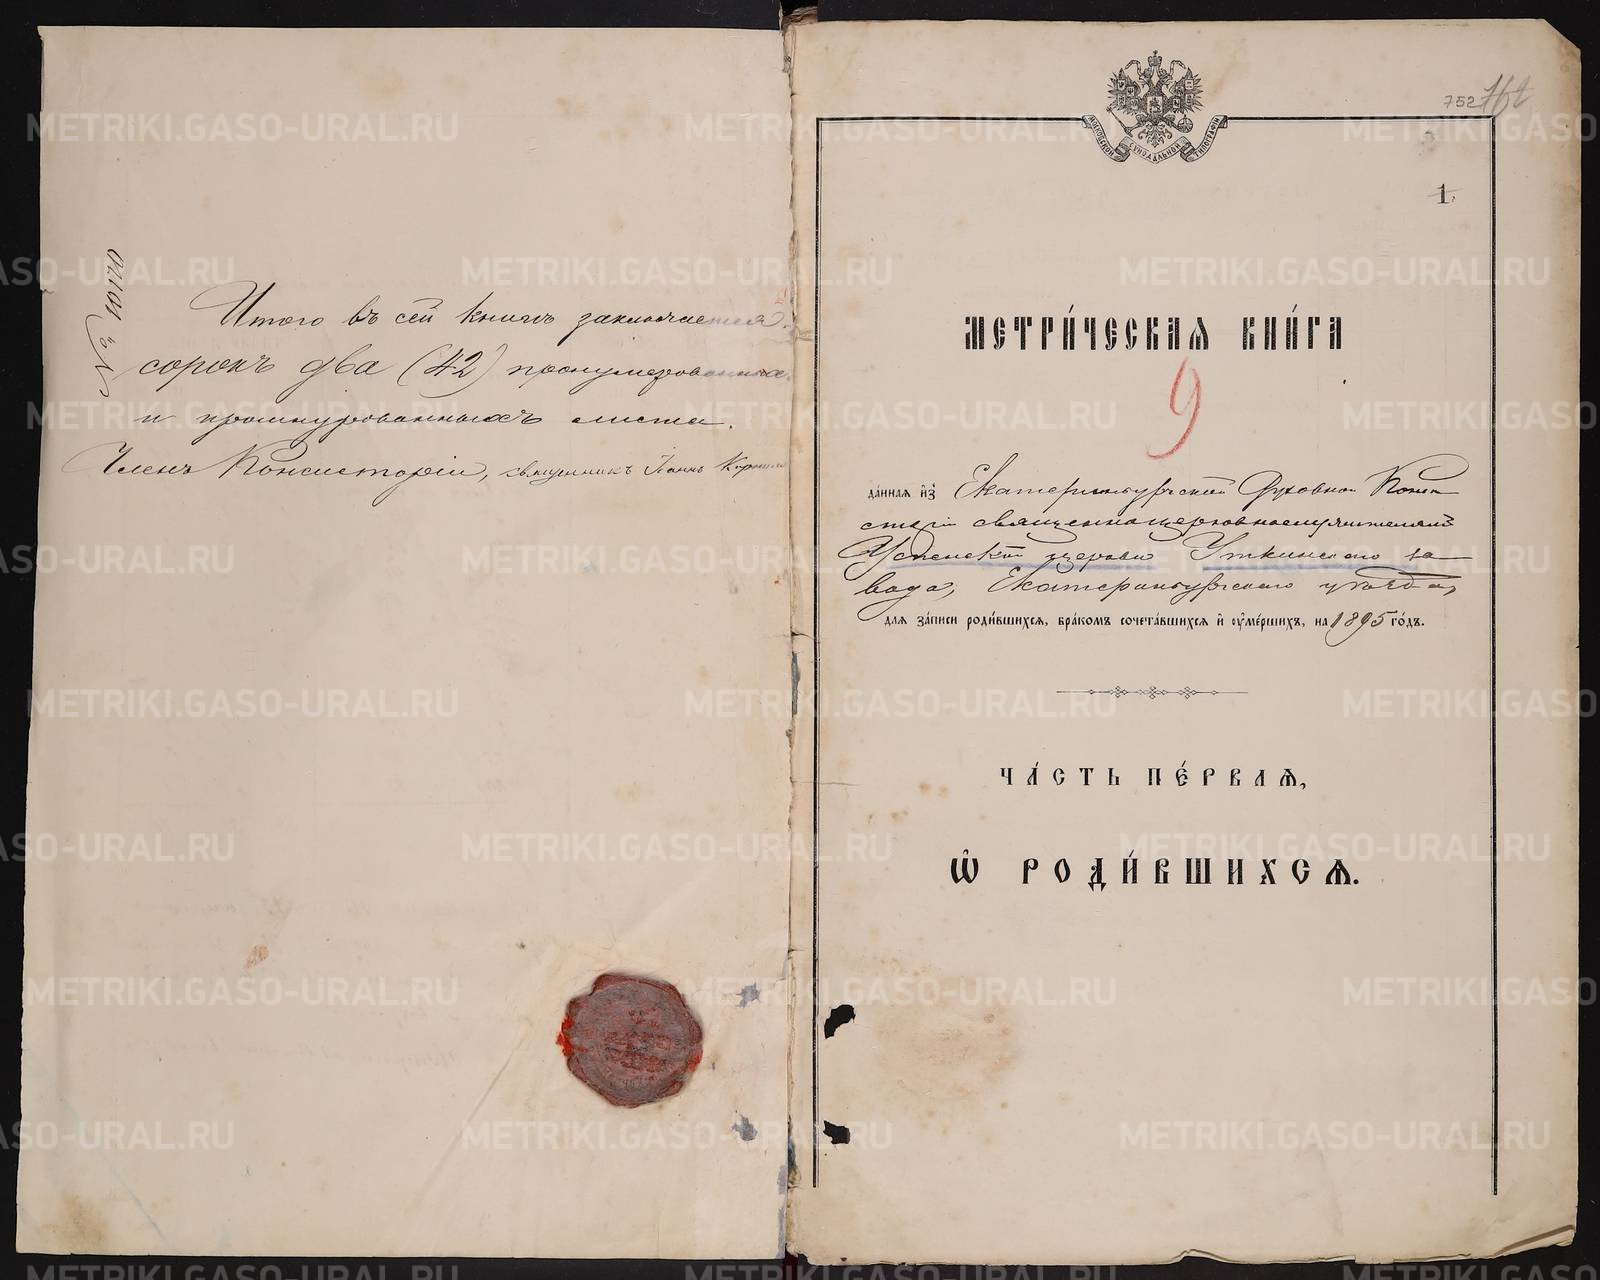 № 10170
Итого въ сей книгѣ заключается
сорокъ два (42) пронумерованныхъ
и прошнурованныхъ листа.
Членъ Консисторіи, священникъ Іоаннъ
752
МОСКОВСКОЙ СѴНОДАЛЬНОЙ ТИПОГРАФІИ
1
МЕТРИ́ЧЕСКАѦ КНИ́ГА
9
да́ннаѧ и҆з̾ Екатеринбургской Духовной Конси
сторіи священноцерковнослужителямъ
Успенской церкви Уткинскаго за
вода, Екатеринбургскаго уѣзда,
длѧ за́писи роди́вшихсѧ, бра́комъ сочета́вшихсѧ и҆ ᲂу҆ме́ршихъ, на 1895 го́дъ.
ЧА́СТЬ ПЕ́РВАѦ,
Ѽ РОДИ́ВШИХСѦ.
METRIKI.GASO-URAL.RU